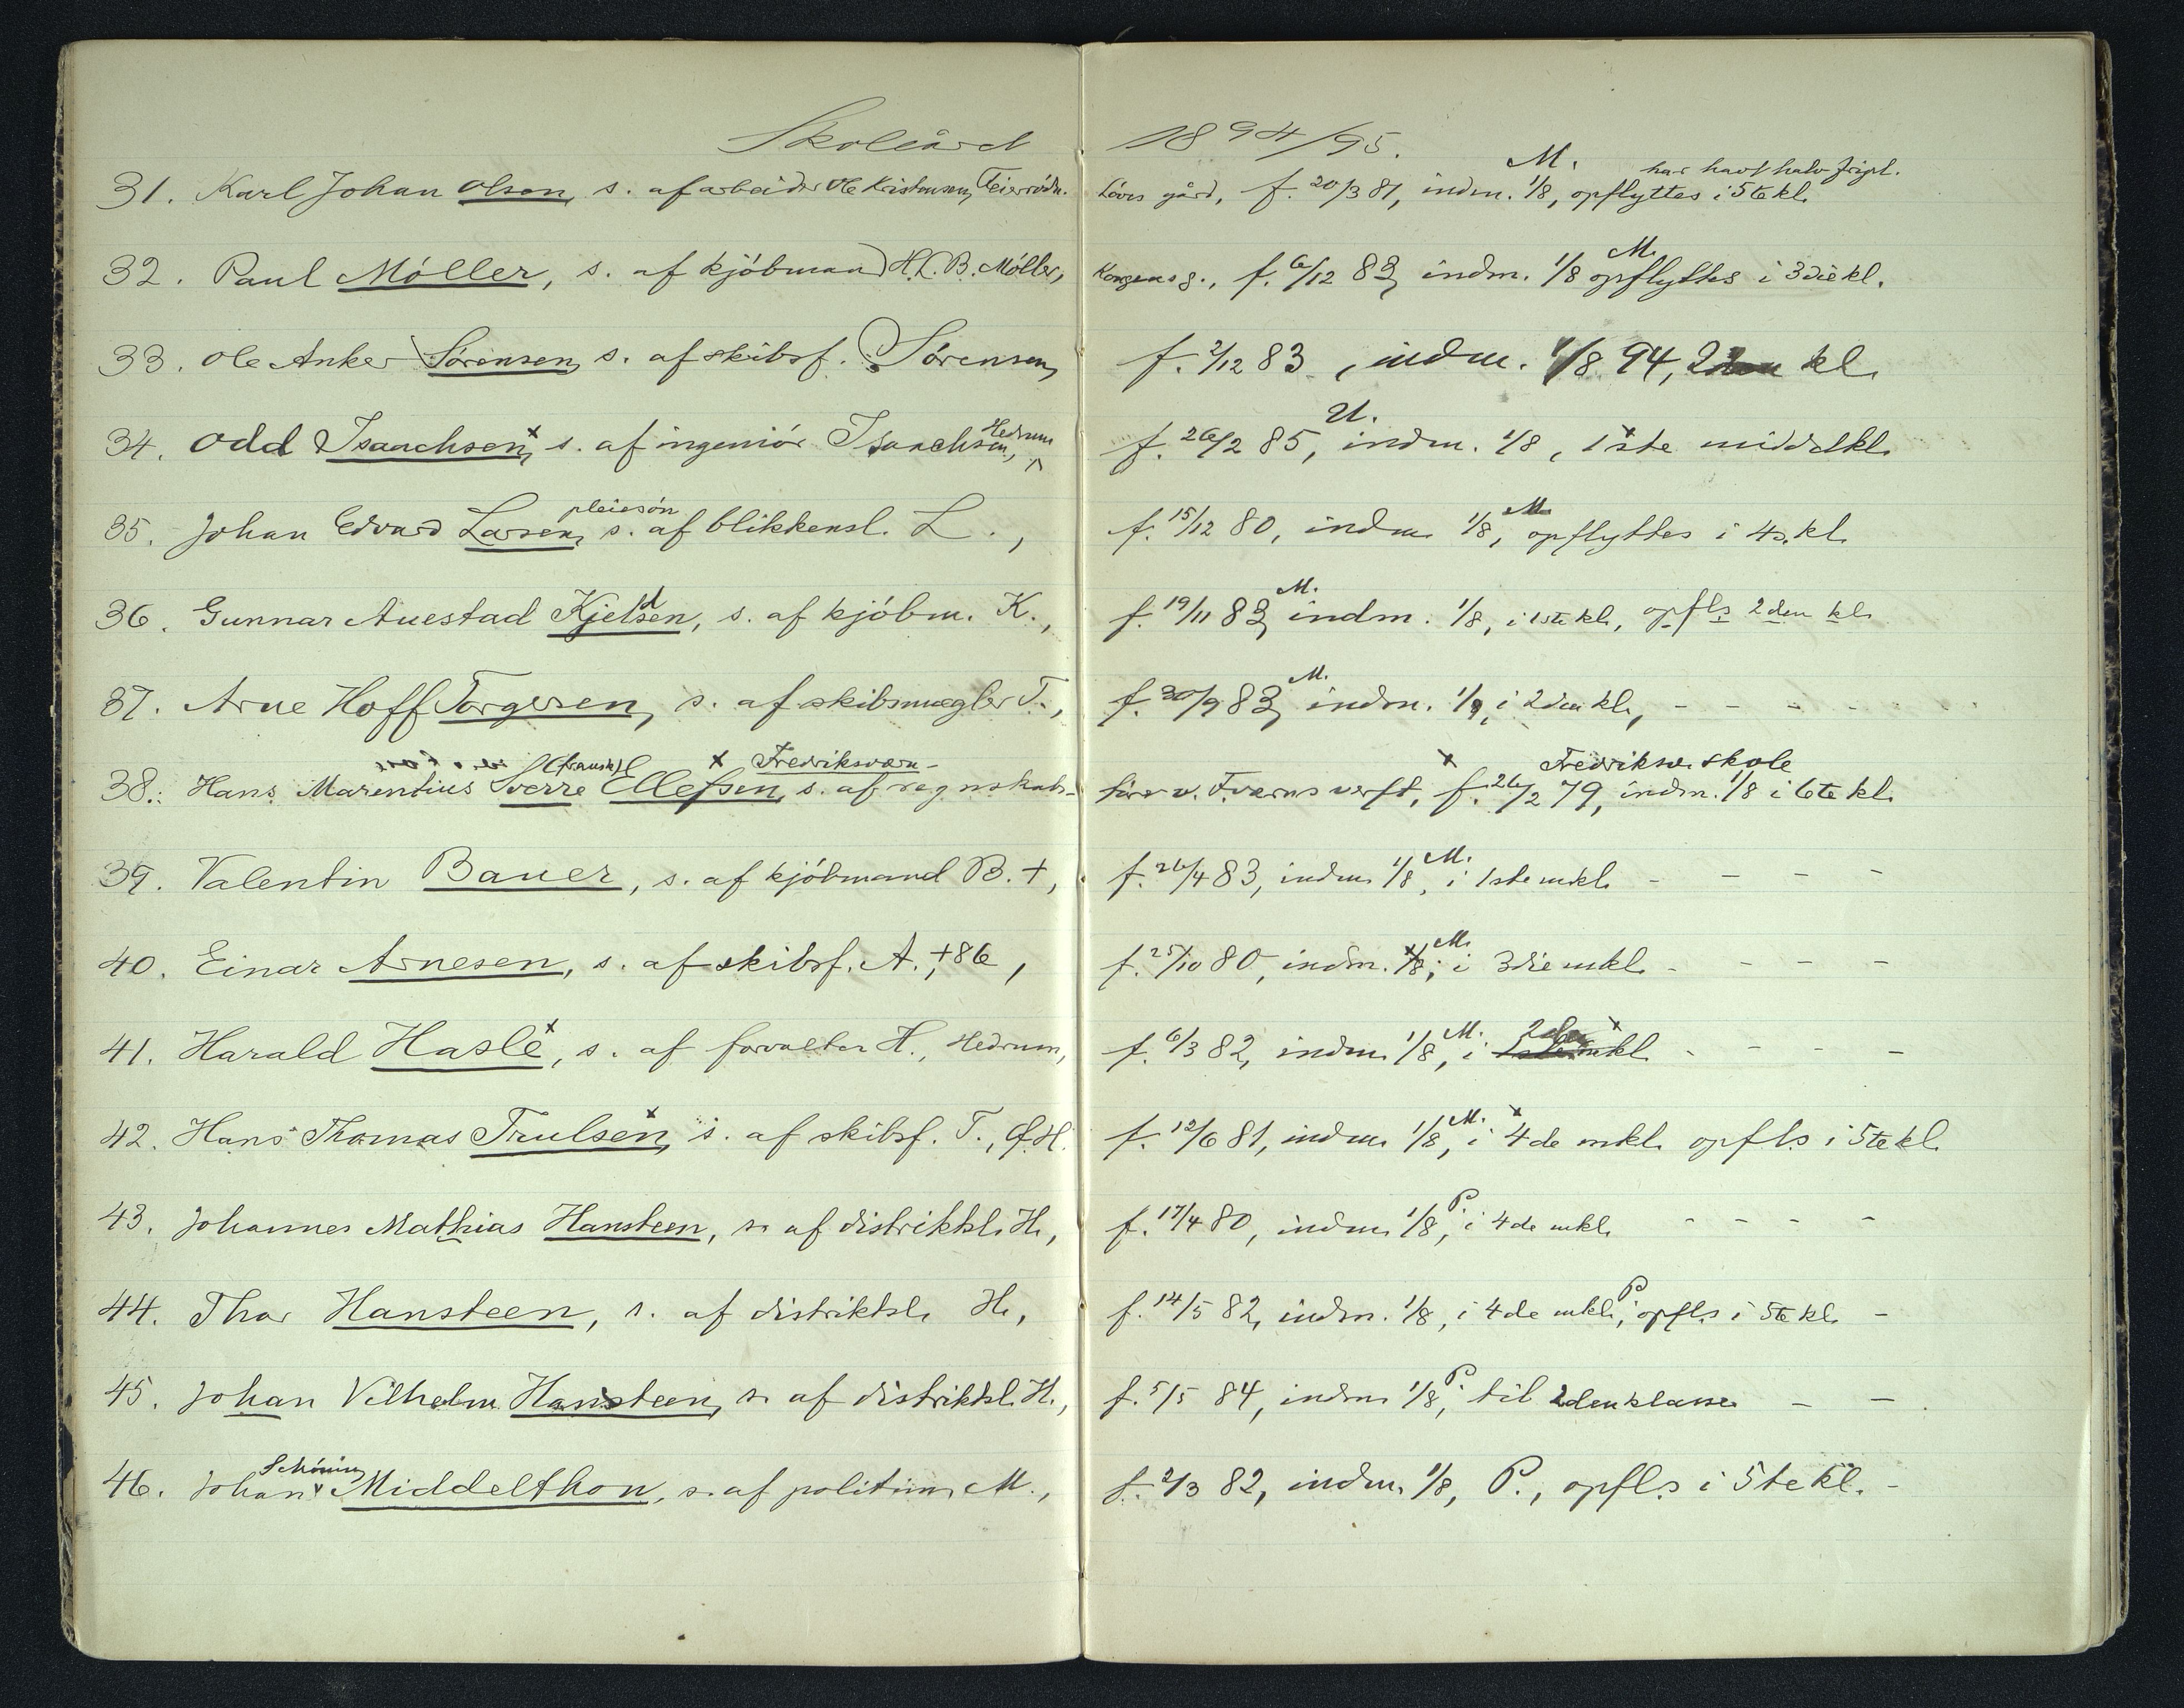 Skoleåret 1894/95.
M. har havt halv fripl.
31. Karl Johan Olsen, s. af arbeider Ole Kristensen, Løvs gård, f. 20/3 81, indm. 1/8, opflyttes i 5te kl.
M.
32. Paul Møller, s. af kjøbmand H. C. B. Møller, Kongens g., f. 6/12 83, indm. 1/8 opflyttes i 3die kl.
33. Ole Anker Sørensen, s. af skibsf. Sørensen, f. 2/12 83, indm. 1/8 94, 2den kl.
U.
34. Odd Isaachsen, x s. af ingeniør Isaachsen, Hedrum f. 26/2 85, indm. 1/8, 1ste middelkl.
pleiesøn M.
35. Johan Edvard Larsen, s. af blikkensl. L., f. 15/12 80, indm. 1/8, opflyttes i 4. kl.
M.
36. Gunnar Auestad Kjeldsen, s. af kjøbm. K., f. 19/11 83, indm. 1/8, i 1ste kl., opfls 2den kl.
M.
37. Arne Hoff Torgersen, s. af skibsmægler T., f. 30/9 83, indm. 1/9, i 2den kl., - - - -
(fransk) x Fredriksværn - x Fredriksv. skole
38. Hans Marentius Sverre Ellefsen, s. af regnskabs- fører v. F.værns verft, f. 26/2 79, indm. 1/8 i 6te kl.
M.
39. Valentin Bauer, s. af kjøbmand B. +, f. 26/4 83, indm. 1/8, i 1ste mkl. - - - -
M.
40. Einar Arnesen, s. af skibsf. A., +86, f. 25/10 80, indm. 1/8, i 3die mkl. - - - -
M. 2den x
41. Harald Hasle x, s. af forvalter H., Hedrum, f. 6/3 82, indm. 1/8, i 1ste mkl. - - - -
M. x
42. Hans Thomas Trulsen x, s. af skibsf. T., G.H. f. 12/6 81, indm. 1/8, i 4de mkl. opfls i 5te kl.
P.
43. Johannes Mathias Hansteen, s. af distriktsl. H., f. 17/4 80, indm. 1/8, i 4de mkl. - - - -
P.
44. Thor Hansteen, s. af distriktsl. H., f. 14/5 82, indm. 1/8, i 4de mkl., opfls i 5te kl. -
P.
45. Johan Vilhelm Hansteen, s. af distriktsl. H., f. 5/5 84, indm. 1/8, til 2den klasse - -
Schöning
46. Johan x Middelthon, s. af politim. M., f. 2/3 82, indm. 1/8, P., opfls i 5te kl. -